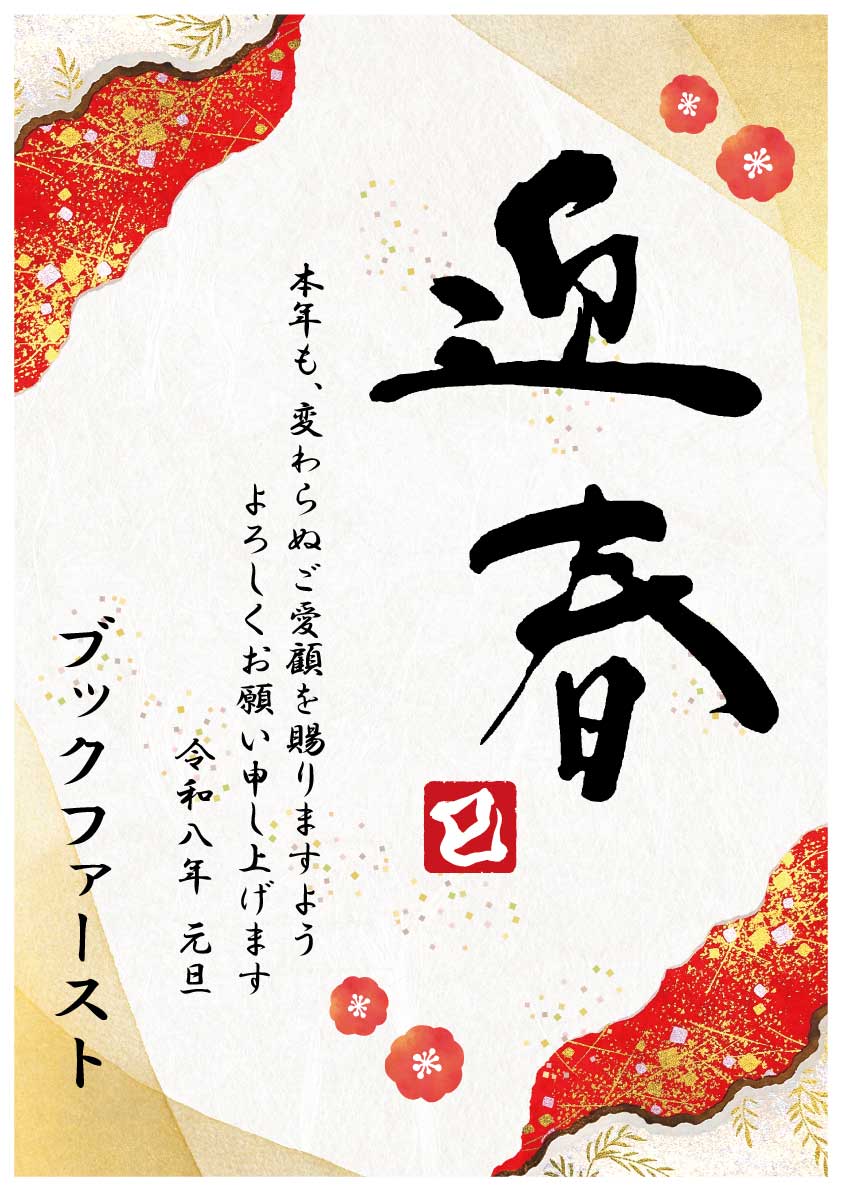 迎春
巳
本年も、変わらぬご愛顧を賜りますよう
よろしくお願い申し上げます
令和八年 元旦
ブックファースト